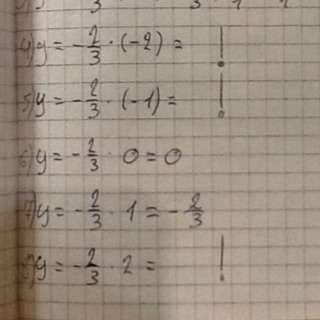 4) y = -2/3 · (-2) = !
5) y = -2/3 · (-1) = !
6) y = -2/3 · 0 = 0
7) y = -2/3 · 1 = -2/3
8) y = -2/3 · 2 = !